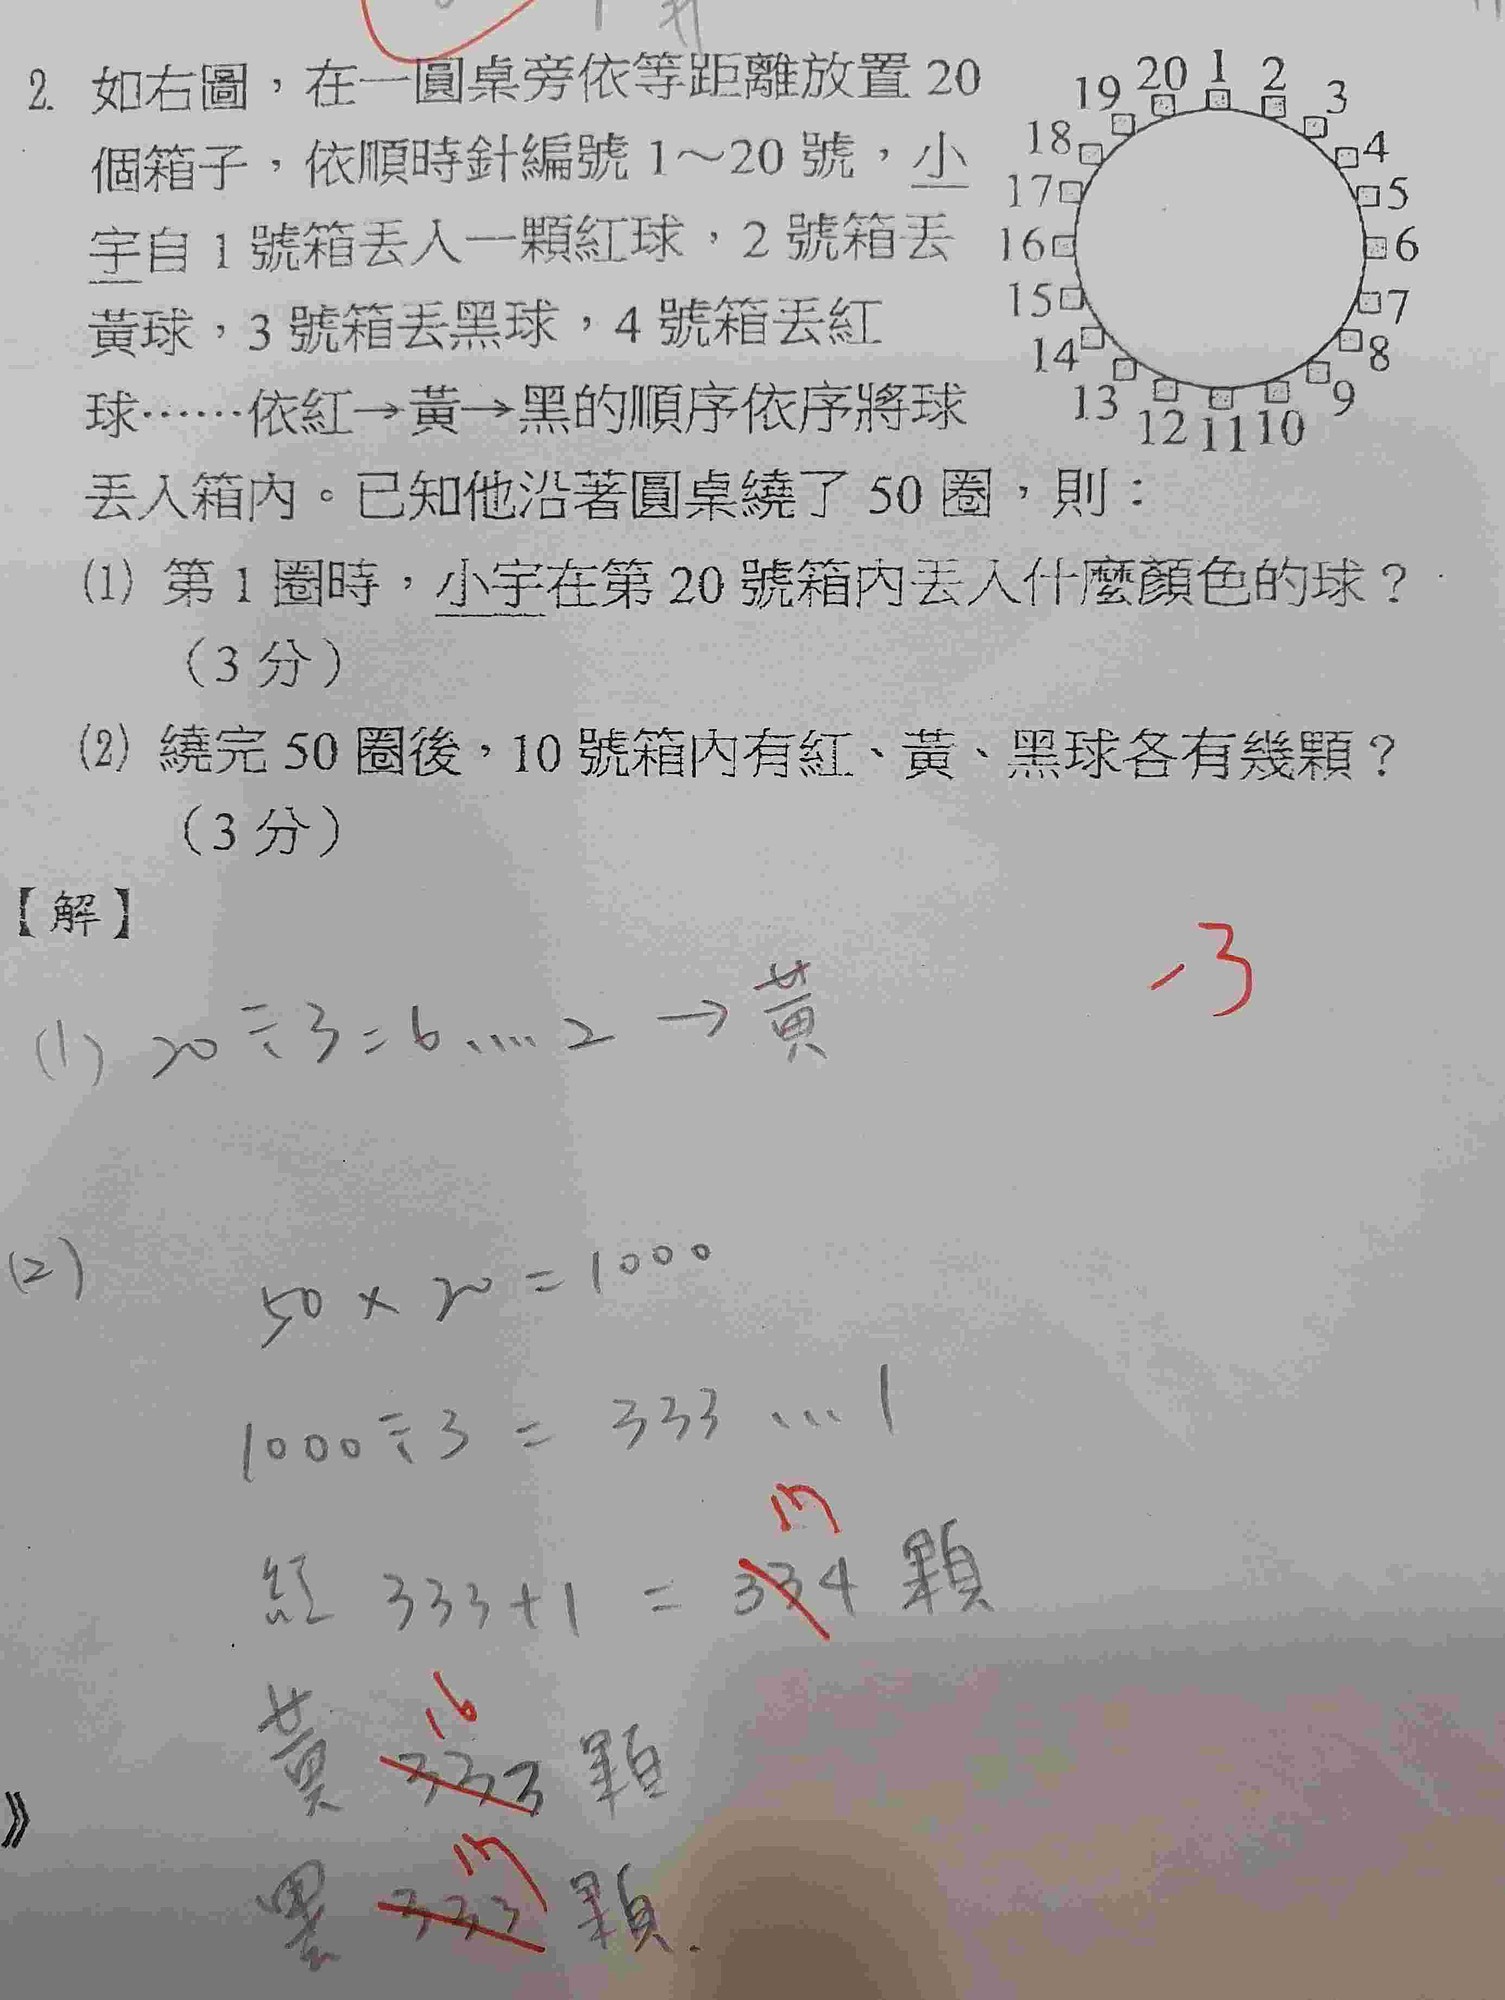 2. 如右圖，在一圓桌旁依等距離放置 20
個箱子，依順時針編號 1～20 號，小
宇自 1 號箱丟入一顆紅球，2 號箱丟
黃球，3 號箱丟黑球，4 號箱丟紅
球……依紅→黃→黑的順序依序將球
丟入箱內。已知他沿著圓桌繞了 50 圈，則：
1 2 3 4 5 6 7 8 9 10 11 12 13 14 15 16 17 18 19 20
(1) 第 1 圈時，小宇在第 20 號箱內丟入什麼顏色的球？
（3 分）
(2) 繞完 50 圈後，10 號箱內有紅、黃、黑球各有幾顆？
（3 分）
【解】
-3
(1) 20÷3=6....2 → 黃
(2) 50 × 20 = 1000
1000÷3 = 333 ...1
17
紅 333+1 = 334 顆
16
黃 333 顆
17
黑 333 顆.
》